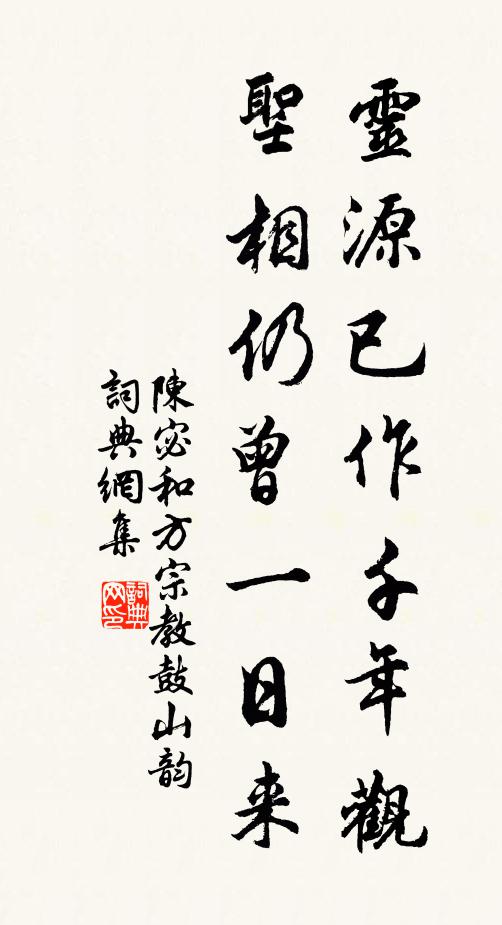 靈源已作千年觀
聖相仍曾一日来
陳宓和方宗教鼓山韵
詞典網集
詞典
网印